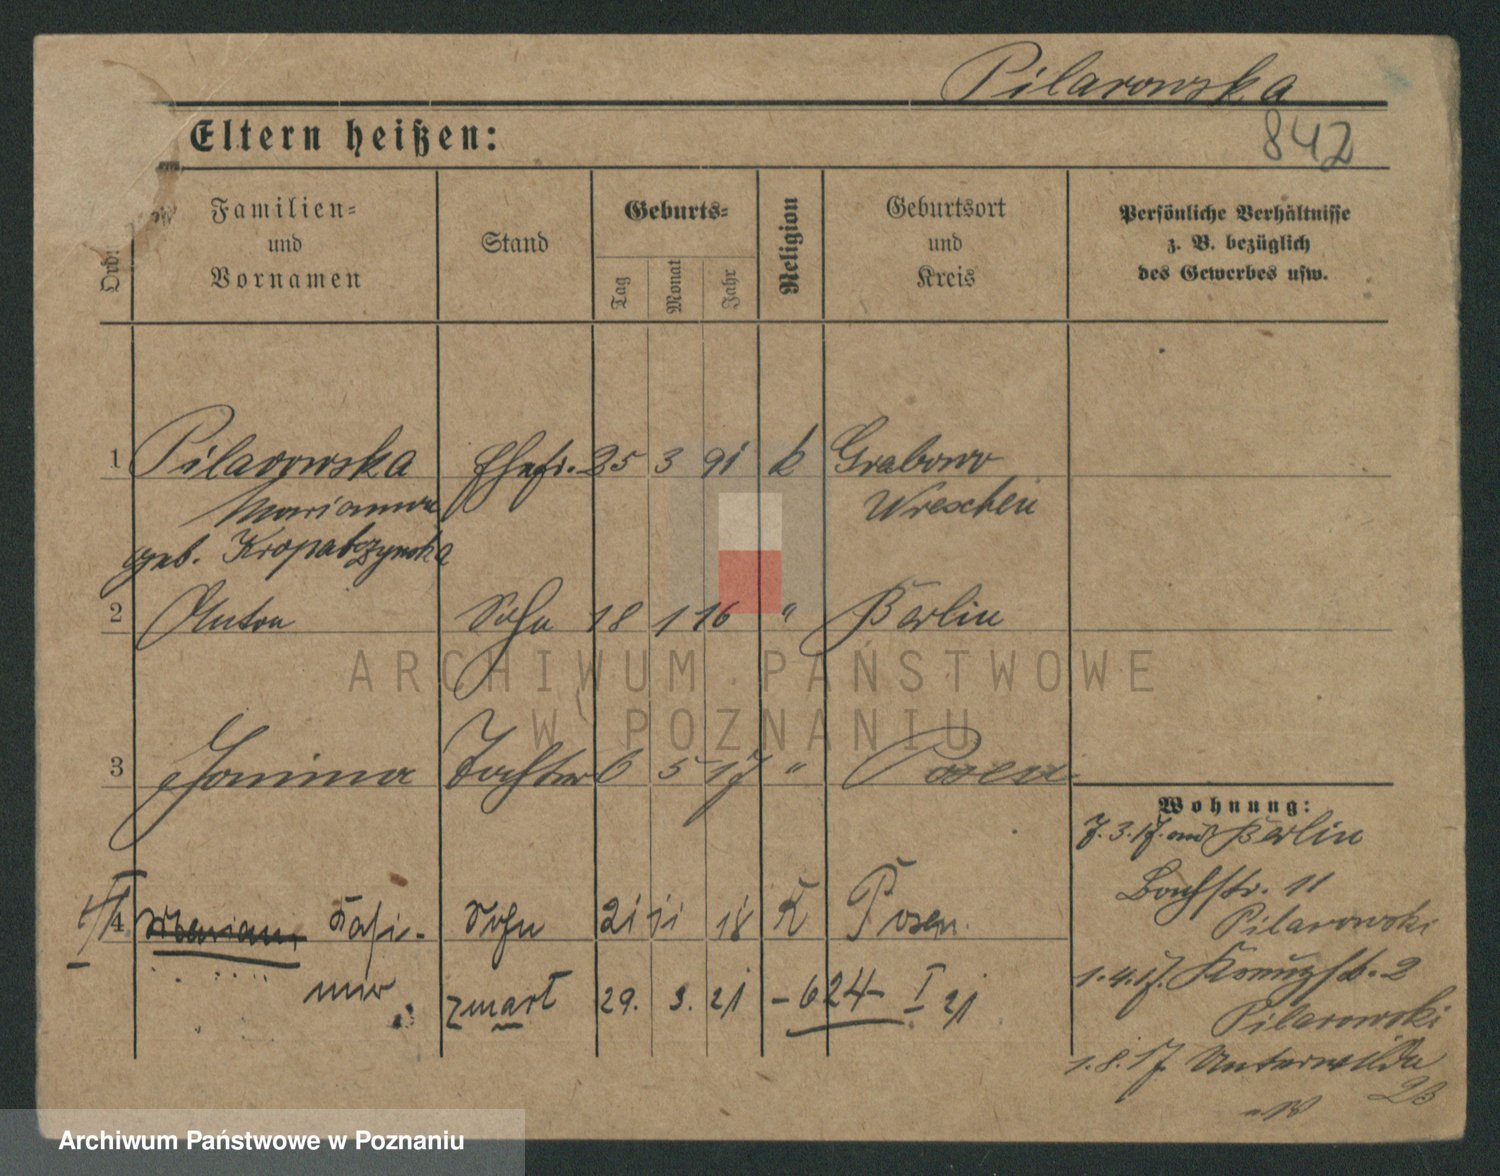 Pilarowska
Eltern heißen:
842
Familien-
und
Vornamen
Stand
Geburts-
Tag
Monat
Jahr
Religion
Geburtsort
und
Kreis
Persönliche Verhältnisse
z. B. bezüglich
des Gewerbes usw.
1 Pilarowska Ehefr. 25 3 91 k Grabowo
Marianna Wreschen
geb. Kropatczynska
2 Anton Sohn 18 1 16 " Berlin
3 Janina Tochter 6 5 17 " Posen
Wohnung:
7.3.17. aus Berlin
Bachstr. 11
4 Marian Kasi- Sohn 21 11 18 K Posen.
Pilarowski
mir
1.4.17. Kreuzstr. 2
zmarł 29. 3. 21 - 624 - I 21
Pilarowski
1.8.17 Unterwilda
23
ARCHIWUM PAŃSTWOWE
W POZNANIU
Archiwum Państwowe w Poznaniu